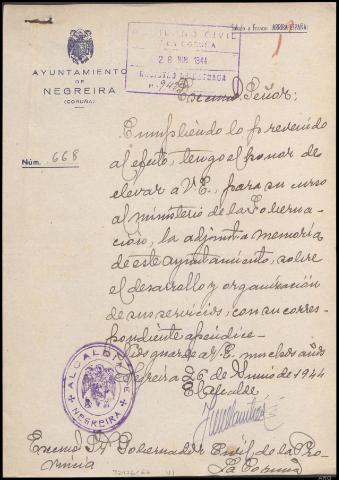 Saludo a Franco: ARRIBA ESPAÑA!
GOBIERNO CIVIL
LA CORUÑA
28 JUN 1944
REGISTRO DE ENTRADA
AYUNTAMIENTO
DE
NEGREIRA
(CORUÑA)
Núm. 668
Excmo. Señor:
Cumpliendo lo prevenido
al efecto, tengo el honor de
elevar a V.E., para su curso
al ministerio de la Goberna-
ción, la adjunta memoria
de este ayuntamiento, sobre
el desarrollo y organización
de sus servicios, con su corres-
pondiente apéndice.-
Dios guarde a V.E. muchos años
Negreira 26 de Junio de 1944
El alcalde,
ALCALDIA DE
NEGREIRA
Excmo. Sr. Gobernador Civil de la Pro-
vincia
La Coruña